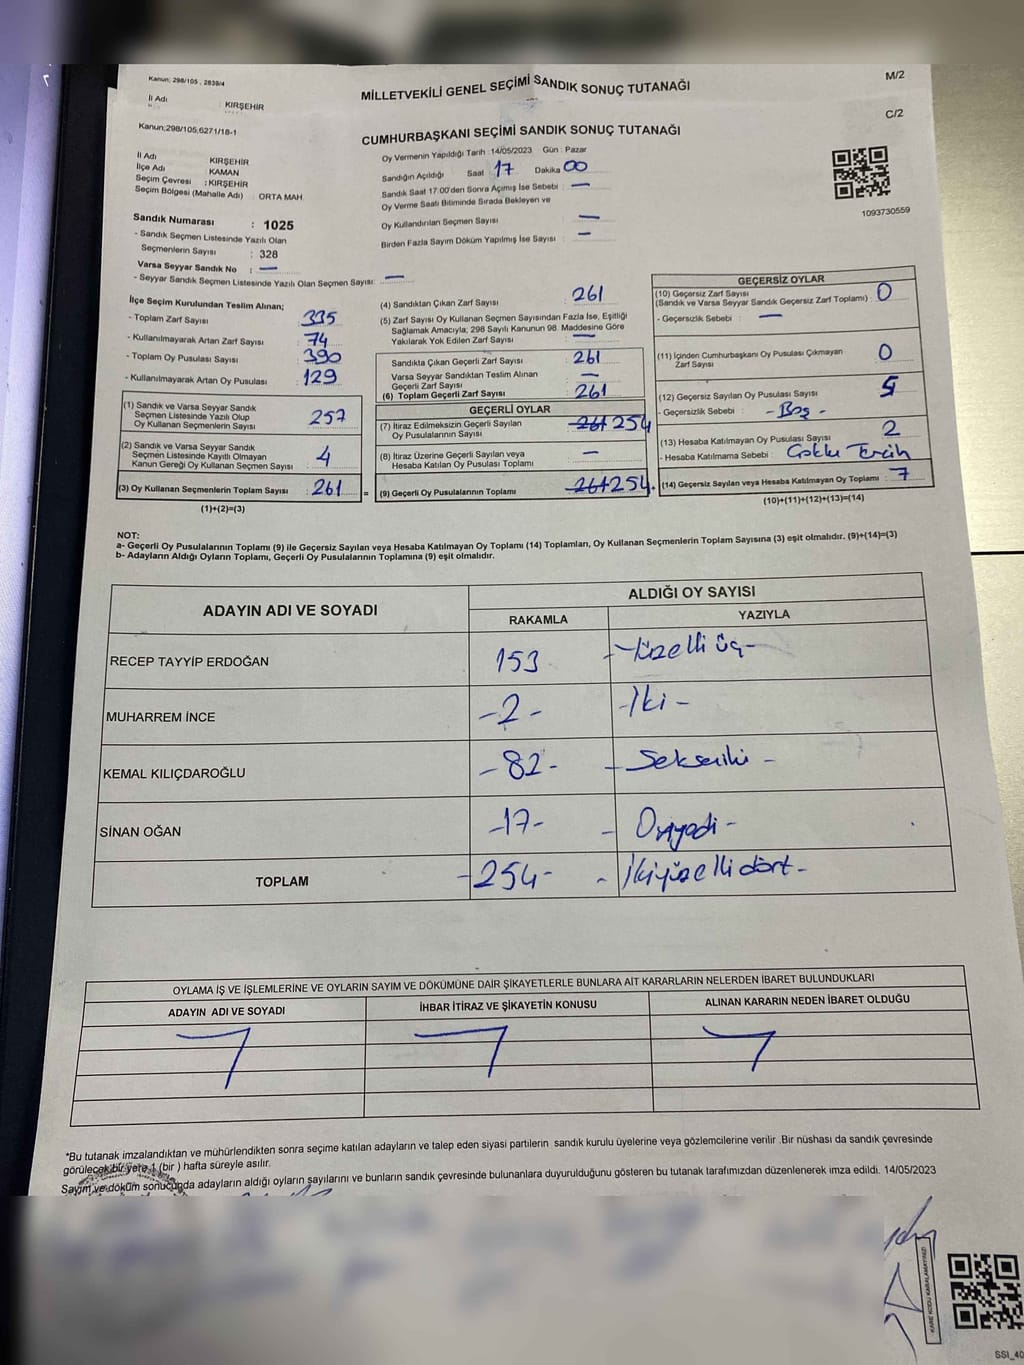 Kanun; 298/105 , 2839/4
MİLLETVEKİLİ GENEL SEÇİMİ SANDIK SONUÇ TUTANAĞI
M/2
İl Adı : KIRŞEHİR
Kanun;298/105,6271/18-1
CUMHURBAŞKANI SEÇİMİ SANDIK SONUÇ TUTANAĞI
C/2
İl Adı KIRŞEHİR
İlçe Adı KAMAN
Seçim Çevresi : KIRŞEHİR
Seçim Bölgesi (Mahalle Adı) : ORTA MAH.
Sandık Numarası : 1025
- Sandık Seçmen Listesinde Yazılı Olan
Seçmenlerin Sayısı : 328
Varsa Seyyar Sandık No : —
- Seyyar Sandık Seçmen Listesinde Yazılı Olan Seçmen Sayısı: —
Oy Vermenin Yapıldığı Tarih : 14/05/2023 Gün : Pazar
Sandığın Açıldığı Saat 17 Dakika 00
Sandık Saat 17:00'den Sonra Açımış İse Sebebi : —
Oy Verme Saati Bitiminde Sırada Bekleyen ve
Oy Kullandırılan Seçmen Sayısı : —
Birden Fazla Sayım Döküm Yapılmış İse Sayısı : —
1093730559
İlçe Seçim Kurulundan Teslim Alınan;
- Toplam Zarf Sayısı 335
- Kullanılmayarak Artan Zarf Sayısı : 74
- Toplam Oy Pusulası Sayısı : 390
- Kullanılmayarak Artan Oy Pusulası : 129
(1) Sandık ve Varsa Seyyar Sandık
Seçmen Listesinde Yazılı Olup
Oy Kullanan Seçmenlerin Sayısı 257
(2) Sandık ve Varsa Seyyar Sandık
Seçmen Listesinde Kayıtlı Olmayan
Kanun Gereği Oy Kullanan Seçmen Sayısı 4
(3) Oy Kullanan Seçmenlerin Toplam Sayısı : 261 =
(1)+(2)=(3)
(4) Sandıktan Çıkan Zarf Sayısı : 261
(5) Zarf Sayısı Oy Kullanan Seçmen Sayısından Fazla İse, Eşitliği
Sağlamak Amacıyla; 298 Sayılı Kanunun 98. Maddesine Göre
Yakılarak Yok Edilen Zarf Sayısı : —
Sandıkta Çıkan Geçerli Zarf Sayısı : 261
Varsa Seyyar Sandıktan Teslim Alınan
Geçerli Zarf Sayısı : —
(6) Toplam Geçerli Zarf Sayısı : 261
GEÇERLİ OYLAR
(7) İtiraz Edilmeksizin Geçerli Sayılan
Oy Pusulalarının Sayısı : 261 254
(8) İtiraz Üzerine Geçerli Sayılan veya
Hesaba Katılan Oy Pusulası Toplamı : —
(9) Geçerli Oy Pusulalarının Toplamı 261 254.
GEÇERSİZ OYLAR
(10) Geçersiz Zarf Sayısı
(Sandık ve Varsa Seyyar Sandık Geçersiz Zarf Toplamı) : 0
- Geçersizlik Sebebi : —
(11) İçinden Cumhurbaşkanı Oy Pusulası Çıkmayan
Zarf Sayısı : 0
(12) Geçersiz Sayılan Oy Pusulası Sayısı : 5
- Geçersizlik Sebebi : - Boş -
(13) Hesaba Katılmayan Oy Pusulası Sayısı : 2
- Hesaba Katılmama Sebebi : Çoklu Tercih
(14) Geçersiz Sayılan veya Hesaba Katılmayan Oy Toplamı : 7
(10)+(11)+(12)+(13)=(14)
NOT:
a- Geçerli Oy Pusulalarının Toplamı (9) ile Geçersiz Sayılan veya Hesaba Katılmayan Oy Toplamı (14) Toplamları, Oy Kullanan Seçmenlerin Toplam Sayısına (3) eşit olmalıdır. (9)+(14)=(3)
b- Adayların Aldığı Oyların Toplamı, Geçerli Oy Pusulalarının Toplamına (9) eşit olmalıdır.
ADAYIN ADI VE SOYADI ALDIĞI OY SAYISI
RAKAMLA YAZIYLA
RECEP TAYYİP ERDOĞAN 153 -Yüzelli üç-
MUHARREM İNCE -2- -İki -
KEMAL KILIÇDAROĞLU -82- - Sekseniki -
SİNAN OĞAN -17- - Onyedi -
TOPLAM -254- - İkiyüzellidört -
OYLAMA İŞ VE İŞLEMLERİNE VE OYLARIN SAYIM VE DÖKÜMÜNE DAİR ŞİKAYETLERLE BUNLARA AİT KARARLARIN NELERDEN İBARET BULUNDUKLARI
ADAYIN ADI VE SOYADI İHBAR İTİRAZ VE ŞİKAYETİN KONUSU ALINAN KARARIN NEDEN İBARET OLDUĞU
*Bu tutanak imzalandıktan ve mühürlendikten sonra seçime katılan adayların ve talep eden siyasi partilerin sandık kurulu üyelerine veya gözlemcilerine verilir .Bir nüshası da sandık çevresinde
görülecek bir yere 1 (bir ) hafta süreyle asılır.
Sayım ve döküm sonucunda adayların aldığı oyların sayılarını ve bunların sandık çevresinde bulunanlara duyurulduğunu gösteren bu tutanak tarafımızdan düzenlenerek imza edildi. 14/05/2023
KARE KODU KARALAMAYINIZ!
SSI_40